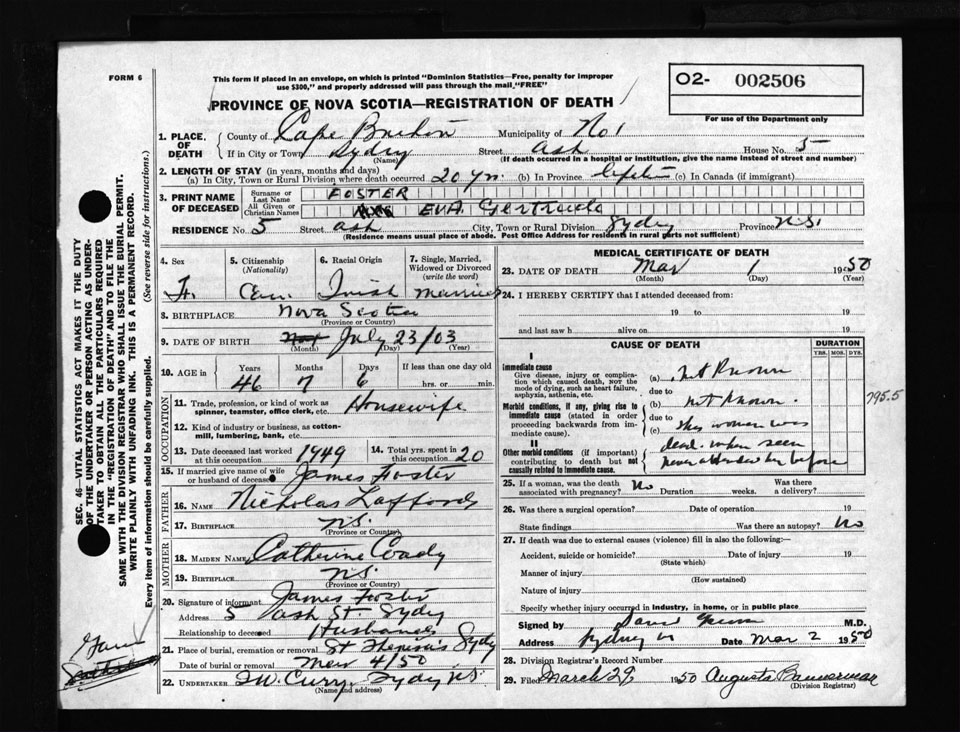 FORM 6
This form if placed in an envelope, on which is printed "Dominion Statistics—Free, penalty for improper
use $300," and properly addressed will pass through the mail, "FREE"
O2- 002506
For use of the Department only
PROVINCE OF NOVA SCOTIA—REGISTRATION OF DEATH
1. PLACE OF DEATH
County of Cape Breton Municipality of No 1
If in City or Town Sydney (Name) Street Ash House No. 5
(If death occurred in a hospital or institution, give the name instead of street and number)
2. LENGTH OF STAY (in years, months and days)
(a) In City, Town or Rural Division where death occurred 20 yrs. (b) In Province (c) In Canada (if immigrant)
3. PRINT NAME OF DECEASED
Surname or Last Name FOSTER
All Given or Christian Names EVA Gertrude
RESIDENCE No. 5 Street ash City, Town or Rural Division Sydney Province N.S.
(Residence means usual place of abode. Post Office Address for residents in rural parts not sufficient)
4. Sex F.
5. Citizenship (Nationality) Can.
6. Racial Origin Irish
7. Single, Married, Widowed or Divorced (write the word) married
8. BIRTHPLACE Nova Scotia
(Province or Country)
9. DATE OF BIRTH July 23/03
(Month) (Day) (Year)
10. AGE in Years Months Days If less than one day old
46 7 6 hrs. or min.
OCCUPATION
11. Trade, profession, or kind of work as spinner, teamster, office clerk, etc. Housewife
12. Kind of industry or business, as cotton-mill, lumbering, bank, etc.
13. Date deceased last worked at this occupation 1949
14. Total yrs. spent in this occupation 20
15. If married give name of wife or husband of deceased James Foster
FATHER
16. Name Nicholas Lafford
17. Birthplace N.S.
(Province or Country)
MOTHER
18. Maiden Name Catherine Coady
19. Birthplace N.S.
(Province or Country)
20. Signature of informant James Foster
Address 5 Ash St. Sydney
Relationship to deceased Husband
21. Place of burial, cremation or removal St Theresa's Sydney
Date of burial or removal Mar 4/50
22. UNDERTAKER Curry, Sydney N.S.
(Name and address)
MEDICAL CERTIFICATE OF DEATH
23. DATE OF DEATH Mar 1 1950
(Month) (Day) (Year)
24. I HEREBY CERTIFY that I attended deceased from:
19 to 19
and last saw h alive on 19
CAUSE OF DEATH DURATION
YRS. MOS. DYS.
I
Immediate cause
Give disease, injury or complication which caused death, NOT the mode of dying, such as heart failure, asphyxia, asthenia, etc.
(a) not known
due to
Morbid conditions, if any, giving rise to immediate cause (stated in order proceeding backwards from immediate cause).
(b) not known.
due to
(c) this woman was
II
Other morbid conditions (if important) contributing to death but not causally related to immediate cause.
dead when seen
never attended her before
795.5
25. If a woman, was the death associated with pregnancy? No Duration weeks. Was there a delivery?
26. Was there a surgical operation? Date of operation 19
State findings Was there an autopsy? No
27. If death was due to external causes (violence) fill in also the following:
Accident, suicide or homicide? Date of injury 19
(State which)
Manner of injury
(How sustained)
Nature of injury
Specify whether injury occurred in industry, in home, or in public place
Signed by David M.D.
Address Sydney Date Mar 2 1950
28. Division Registrar's Record Number
29. Filed March 29 1950 Augusta Bannerman
(Division Registrar)
SEC. 46—VITAL STATISTICS ACT MAKES IT THE DUTY
OF THE UNDERTAKER OR PERSON ACTING AS UNDER-
TAKER TO OBTAIN ALL THE PARTICULARS REQUIRED
IN THE "REGISTRATION OF DEATH" AND TO FILE THE
SAME WITH THE DIVISION REGISTRAR WHO SHALL ISSUE THE BURIAL PERMIT.
WRITE PLAINLY WITH UNFADING INK. THIS IS A PERMANENT RECORD.
Every item of information should be carefully supplied. (See reverse side for instructions.)